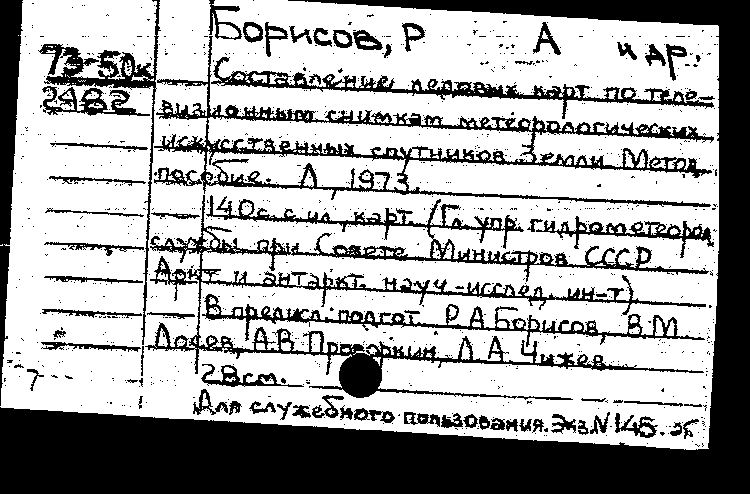 Борисов, Р А и др.
73-50к
Составление ледовых карт по теле-
2482
визионным снимкам метеорологических
искусственных спутников Земли Метод.
пособие. Л, 1973.
140с. с ил, карт. (Гл. упр. гидрометеорол
службы при Совете Министров СССР.
Аркт и антаркт. науч.-исслед. ин-т)
В предисл.: подгот. Р.А.Борисов, В.М
Лосев, А.В. Проворкин, Л А. Чижев
28см.
7
Для служебного пользования. Экз.N145.